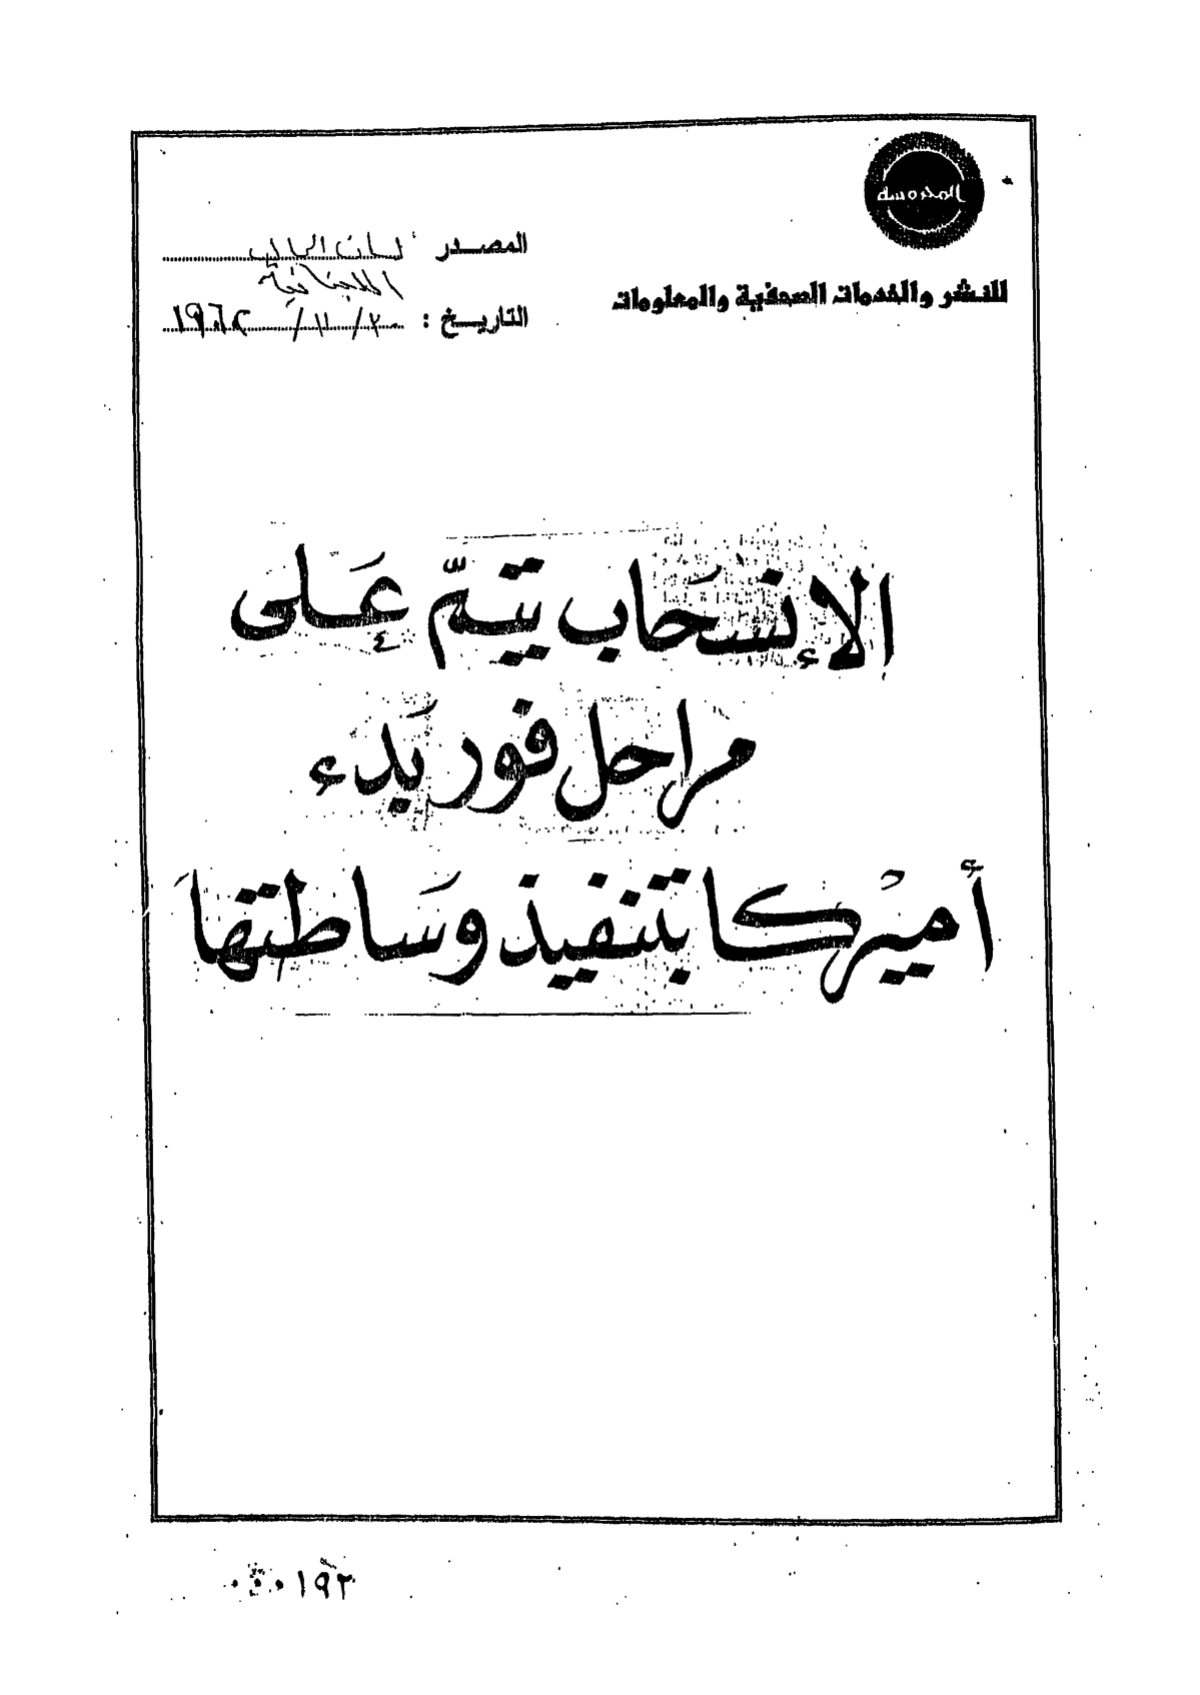 المحروسة
للنشر والخدمات الصحفية والمعلومات
المصدر لسان الحال
اللبنانية
التاريخ : ٢٠ / ١١ / ١٩٦٢
الإنسَحَاب يتِمّ عَلى
مراحل فور بَدء
أميْركا بتنفيذ وسَاطتها
٠٠٠١٩٢